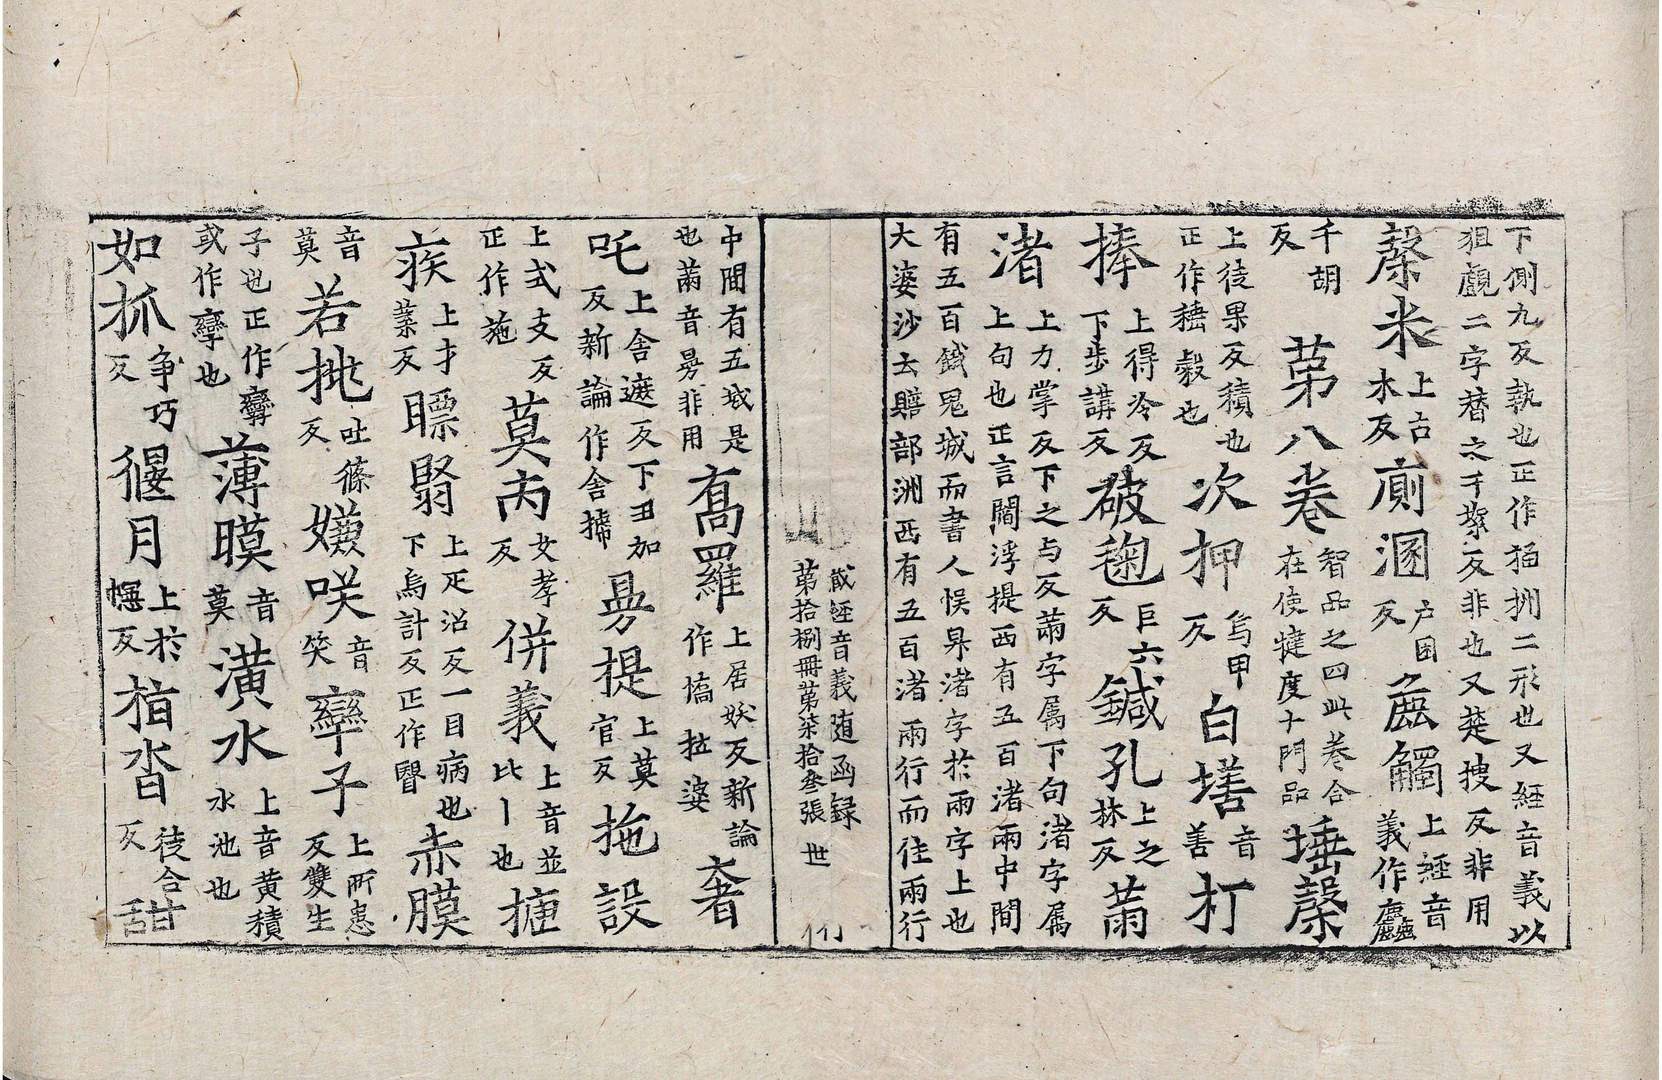 下側九反執也正作㨨捌二形也又經音義以
狙覰二字替之千絮反非也又楚搜反非用
糳米上古木反廁溷户困反麁觸上經音義作麤
千胡反第八卷智品之四此卷合在使犍度十門品埵糳
上徒果反積也正作穗糓也次押烏甲反白墡音善打
捧上得冷反下步講反破毱巨六反鍼孔上之林反萳
渚上力掌反下之与反萳字属下句渚字属上句也正言閻浮提西有五百渚兩中間
有五百餓鬼城而書人悮杲渚字於兩字上也
大婆沙云贍部洲西有五百渚兩行而往兩行
藏經音義随函録
第拾捌冊第柒拾叁張 世
中間有五城是也萳音䒟非用髙羅上居妖反新論作撟拉婆奢
吒上舍遮反下丑加反新論作舍搋䒟提上莫官反拖設
上式支反正作㧞莫丙女孝反併義上音並比丨也搪
疾上才蒺反瞟翳上疋沼反一目病也下烏計反正作瞖赤膜
音莫若挑吐篠反嫌咲音笑孿子上所患反雙生
子也正作孿或作孿也薄瞙音莫潢水上音黄積水池也
如抓争巧反偃月上於幰反㧺沓徒合反甜